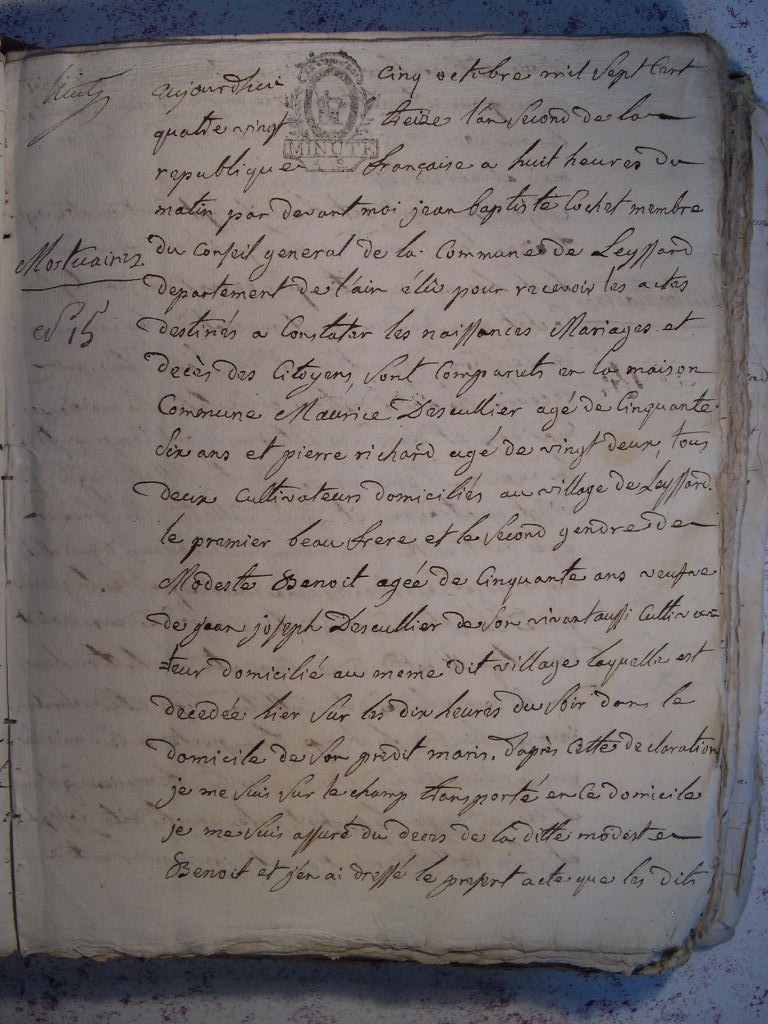 aujourdhui cinq octobre mil sept cent
MINUTE
quatre vingt treize l'an second de la
republique française a huit heures du
matin par devant moi jean baptiste Cochet membre
Mortuaires.
du Conseil general de la Commune de Leyssard
departement de l'ain élu pour recevoir les actes
destinés a Constater les naissances Mariages et
15
decès des Citoyens, sont Comparuts en la maison
Commune Maurice Descullier agé de Cinquante
Six ans et pierre richard agé de vingt deux, tous
deux Cultivateurs domiciliés au village de Leyssard.
le premier beau frere et le Second gendre de
Modeste Benoit agée de Cinquante ans veufve
de jean joseph Descullier de Son vivant aussi Cultiva=
=teur domicilié au meme dit village laquelle est
decedée hier sur les dix heures du Soir dans le
domicile de Son predit maris. d'après Cette declaration
je me Suis sur le champ transporté en Ce domicile
je me suis assuré du deces de la ditte modeste
Benoit et j'en ai dressé le present acte que les dits